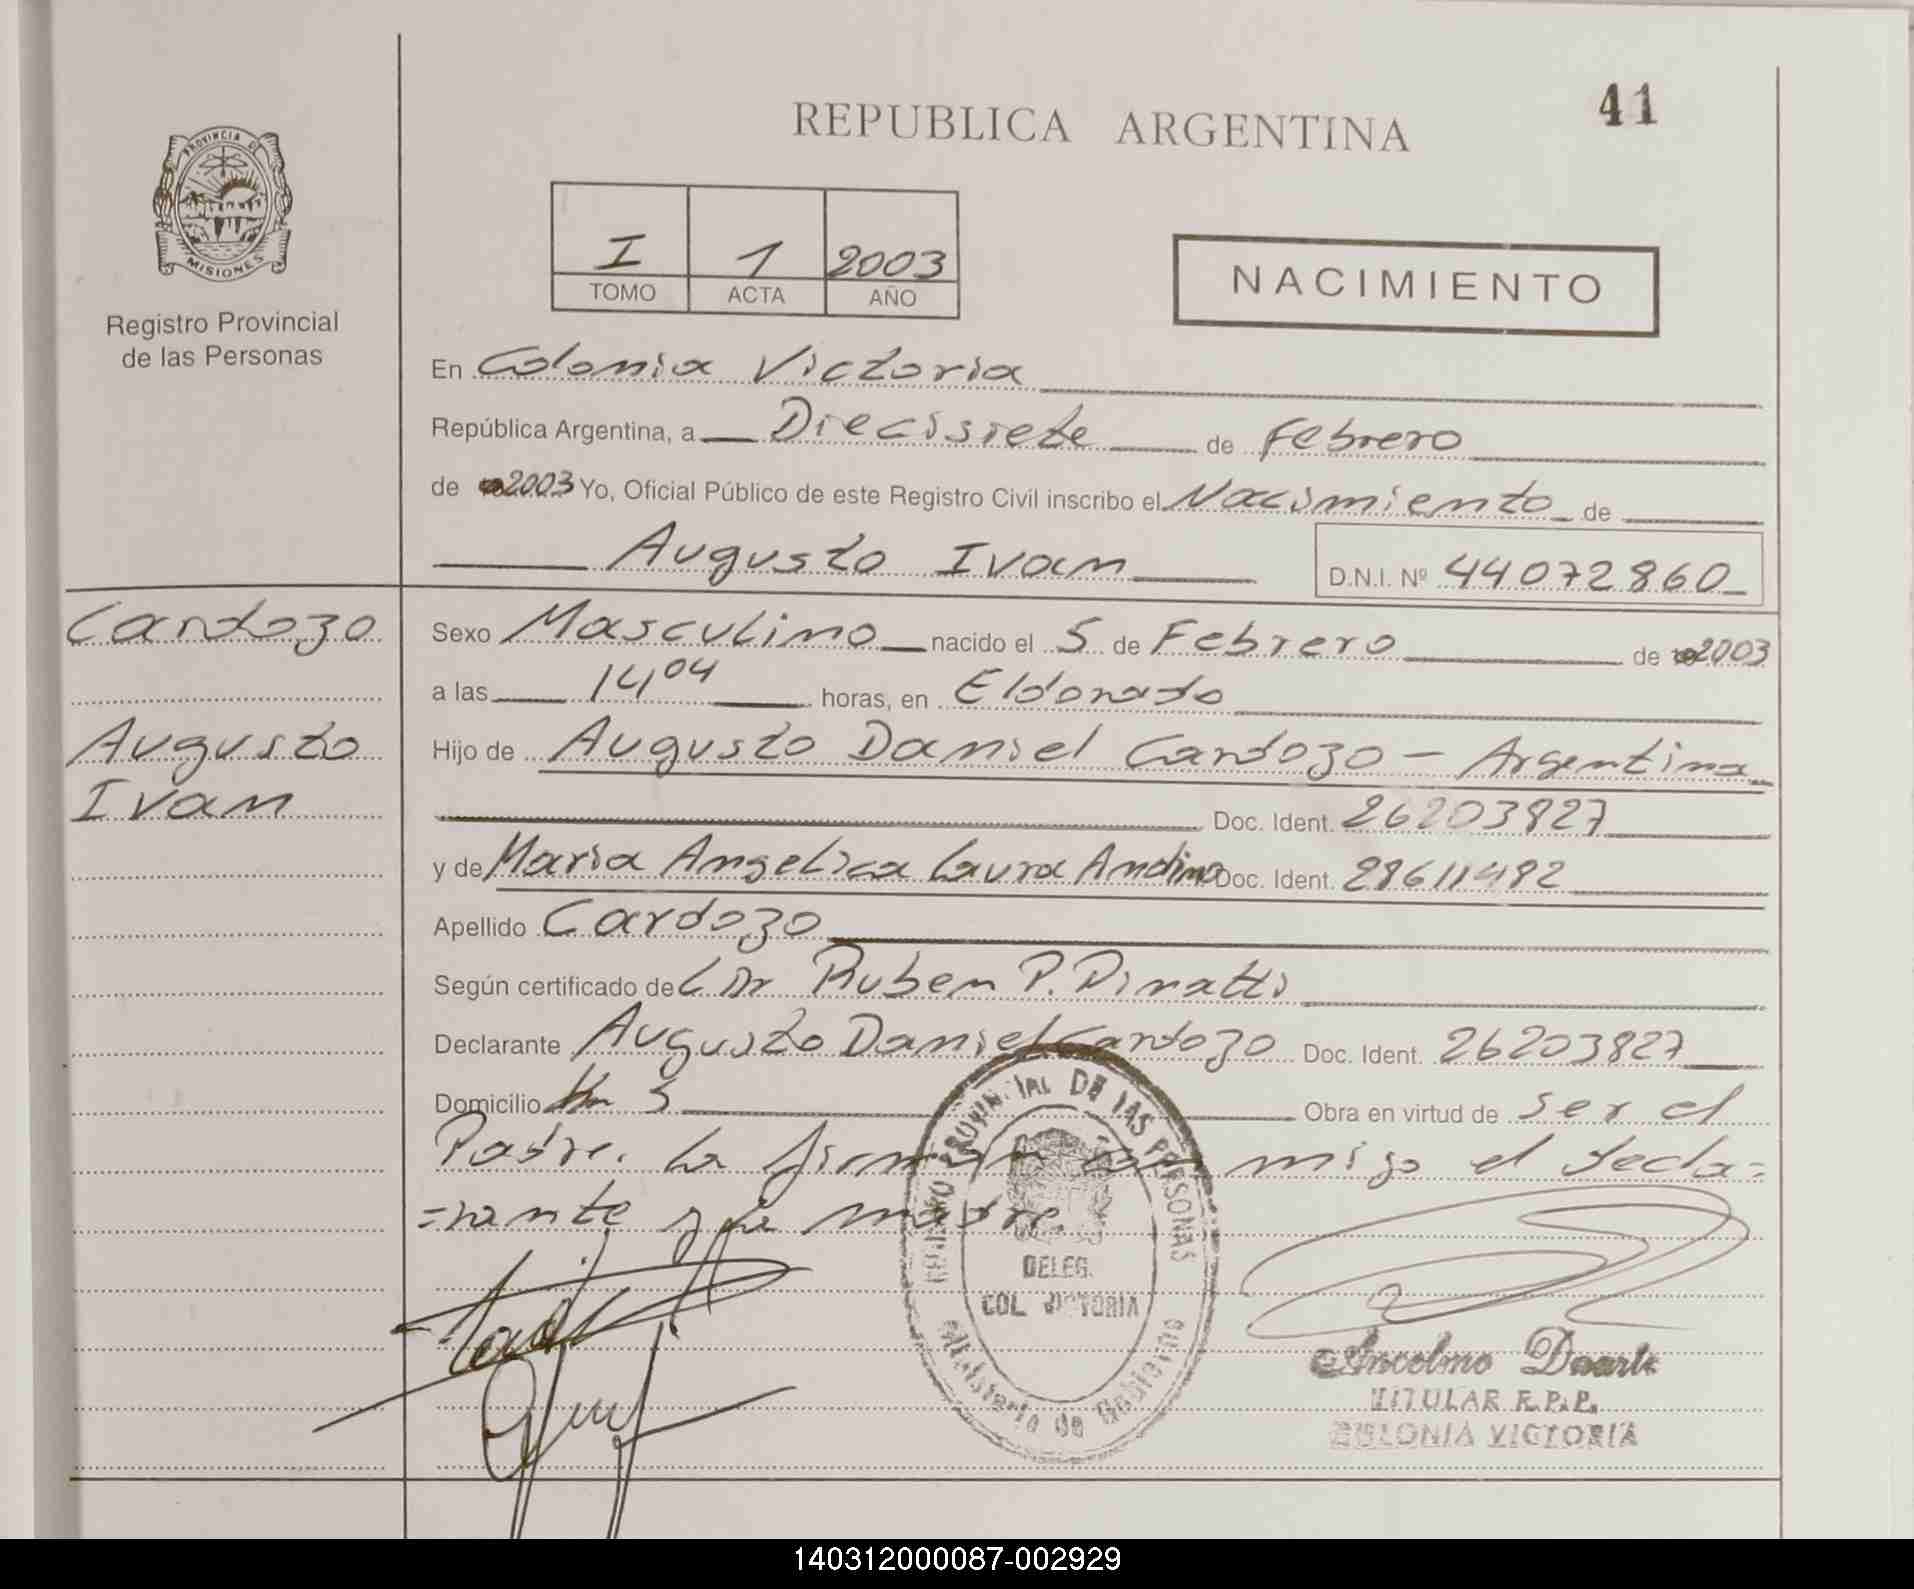 REPUBLICA ARGENTINA
41
PROVINCIA DE
MISIONES
Registro Provincial
de las Personas
I 1 2003
TOMO ACTA AÑO
NACIMIENTO
En Colonia Victoria
República Argentina, a Diecisiete de Febrero
de 2003 Yo, Oficial Público de este Registro Civil inscribo el Nacimiento de
Augusto Ivan D.N.I. Nº 44072860
Cardozo
Augusto
Ivan
Sexo Masculino nacido el 5 de Febrero de 2003
a las 14,04 horas, en Eldorado
Hijo de Augusto Daniel Cardozo - Argentina
Doc. Ident. 26203827
y de Maria Angelica Laura Andino Doc. Ident. 28611482
Apellido Cardozo
Según certificado de Ruben P. Dinatti
Declarante Augusto Daniel Cardozo Doc. Ident. 26203827
Domicilio Km 3 Obra en virtud de ser el
Padre. La firman conmigo el decla=
=rante y la madre.
PROVINCIAL DE LAS PERSONAS
DELEG.
COL VICTORIA
Ministerio de Gobierno
Ancelmo Duarte
TITULAR R.P.P.
COLONIA VICTORIA
140312000087-002929